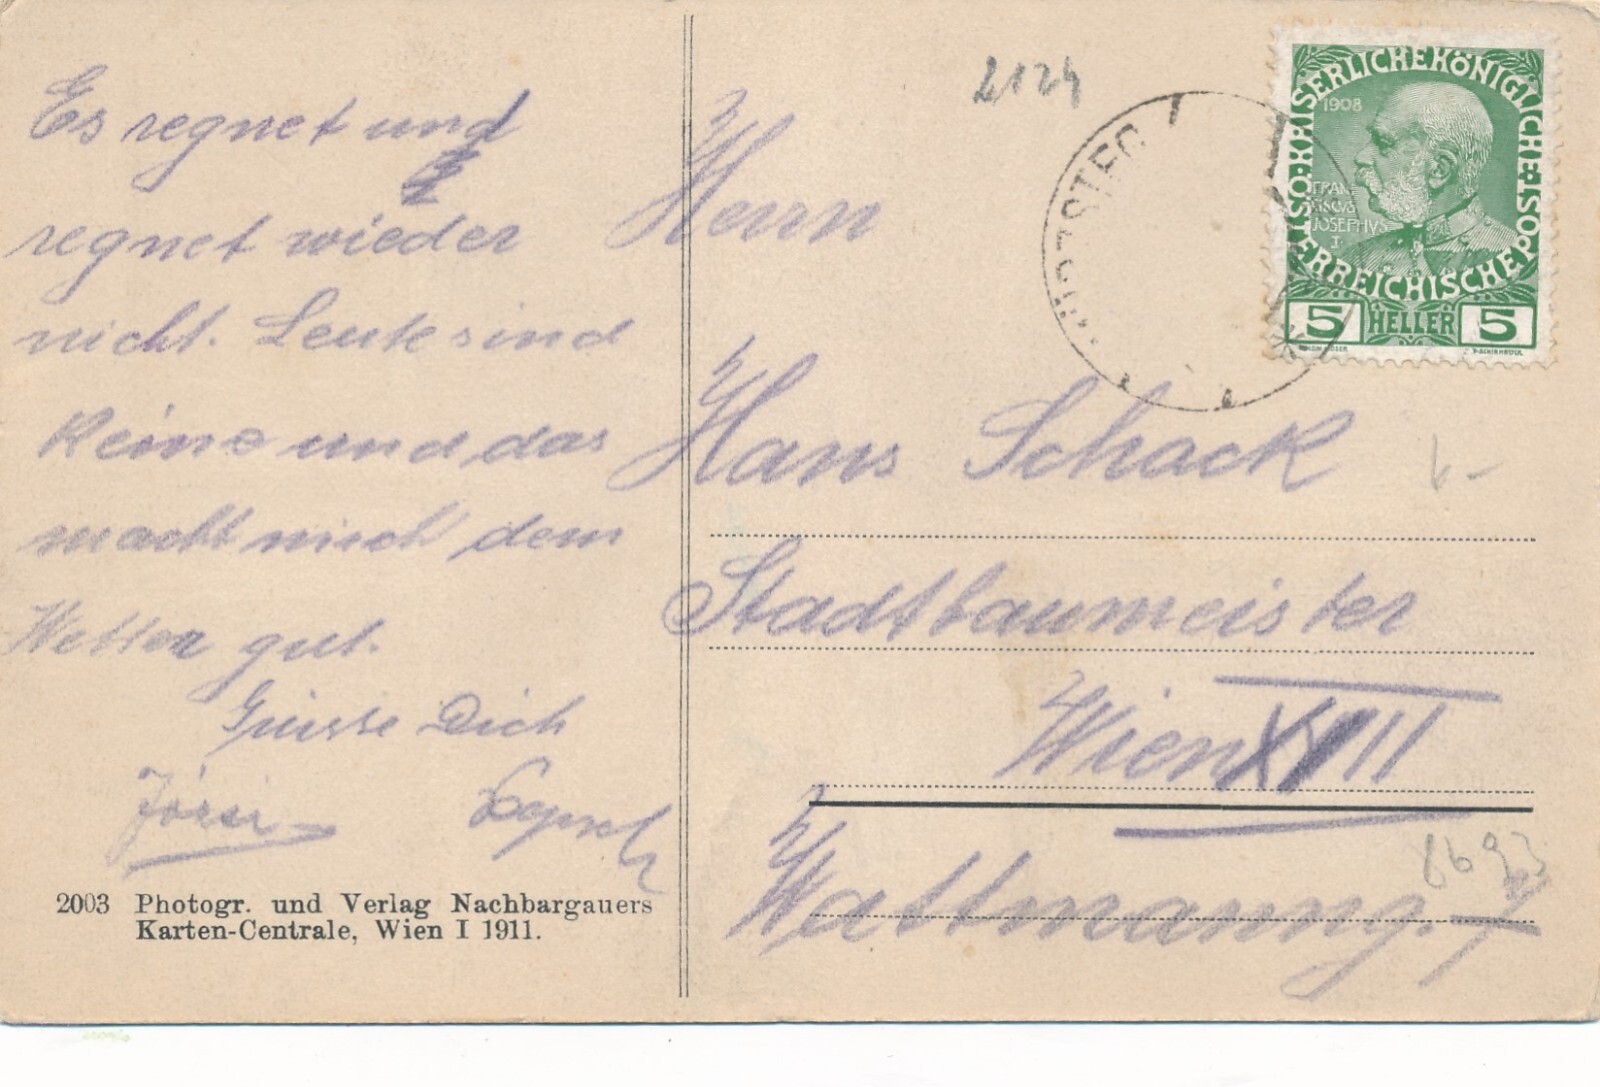 Es regnet und
regnet wieder
nicht. Leute sind
keine und das
macht mich dem
Wetter gut.
Grüsse Dich
2003 Photogr. und Verlag Nachbargauers
Karten-Centrale, Wien I 1911.
2124
KAISERLICHE KÖNIGLICHE
ÖSTERREICHISCHE POST
1908
FRAN
CISCVS
JOSEPHVS
I
5 HELLER 5
Herrn
Hans Schack
Stadtbaumeister
Wien XIII
Wattmanng.